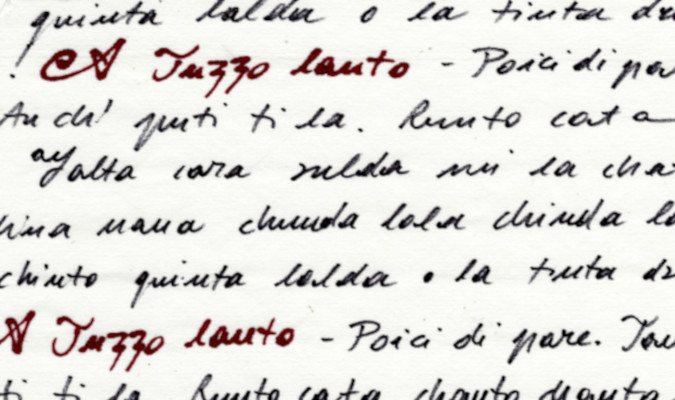 quinta lalda o la tinta
A Tuzzo lanto - Poici di
Anch' puti ti la. Runto cat a
alta cara sulda mi la
nana chunda lola chinda
chinto quinta lalda o la tinta
A Tuzzo lanto - Poici di pare.
ti ti la Runto cata chanta chanta